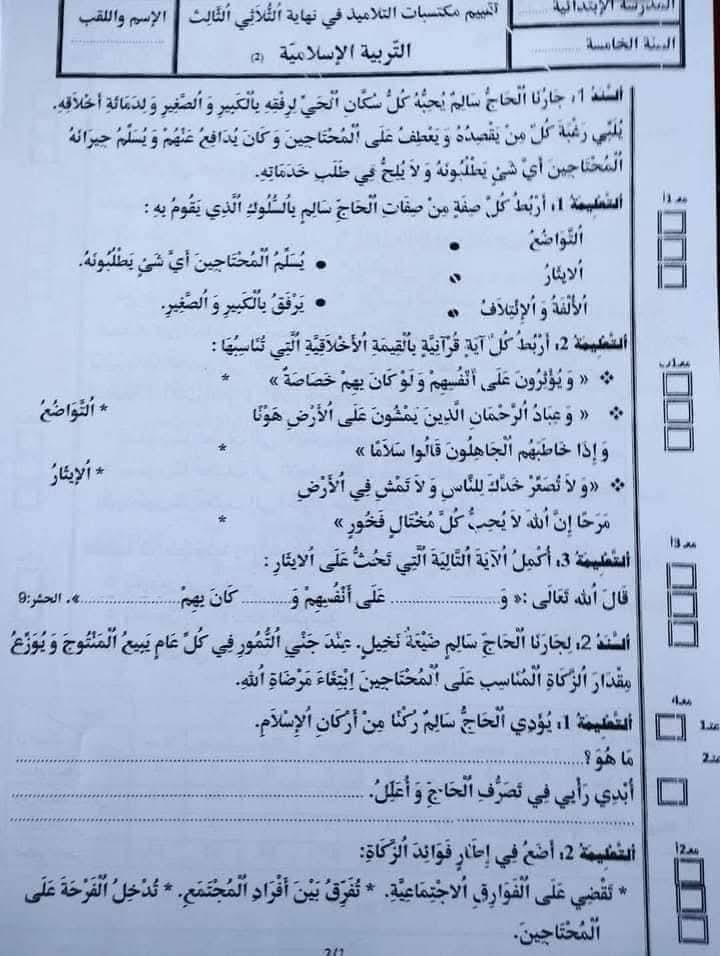 المدرسة الإبتدائية ............
السنة الخامسة ............
تقييم مكتسبات التلاميذ في نهاية الثلاثي الثالث
التّربية الإسلاميّة (2)
الإسم واللقب
السّند 1: جَارُنَا الْحَاجُّ سَالِمٌ يُحِبُّهُ كُلُّ سُكَّانِ الْحَيِّ لِرِفْقِهِ بِالْكَبِيرِ وَ الصَّغِيرِ وَ لِدَمَاثَةِ أَخْلَاقِهِ.
يُلَبِّي رَغْبَةَ كُلِّ مِنْ يَقْصِدُهُ وَ يَعْطِفُ عَلَى الْمُحْتَاجِينَ وَ كَانَ يُدَافِعُ عَنْهُمْ وَ يُسَلِّمُ جِيرَانَهُ
الْمُحْتَاجِينَ أَيَّ شَيْءٍ يَطْلُبُونَهُ وَ لَا يُلِحُّ فِي طَلَبِ خَدَمَاتِهِ.
التّعليمة 1: أَرْبُطُ كُلَّ صِفَةٍ مِنْ صِفَاتِ الْحَاجِّ سَالِمٍ بِالسُّلُوكِ الَّذِي يَقُومُ بِهِ :
معـ1أ
التَّوَاضُعُ •
الايثَارُ • • يُسَلِّمُ الْمُحْتَاجِينَ أَيَّ شَيْءٍ يَطْلُبُونَهُ.
الأُلْفَةُ وَ الإِئْتِلَافُ • • يَرْفَقُ بِالْكَبِيرِ وَ الصَّغِيرِ.
التّعليمة 2: أَرْبُطُ كُلَّ آيَةٍ قُرْآنِيَّةٍ بِالْقِيمَةِ الأَخْلَاقِيَّةِ الَّتِي تُنَاسِبُهَا :
معـ1ب
❖ « وَ يُؤْثِرُونَ عَلَى أَنْفُسِهِمْ وَ لَوْ كَانَ بِهِمْ خَصَاصَةٌ » *
❖ « وَ عِبَادُ الرَّحْمَانِ الَّذِينَ يَمْشُونَ عَلَى الأَرْضِ هَوْنًا * التَّوَاضُعُ
وَ إِذَا خَاطَبَهُم الْجَاهِلُونَ قَالُوا سَلَامًا » *
* الإِيثَارُ
❖ «وَ لَا تُصَعِّرْ خَدَّكَ لِلنَّاسِ وَ لَا تَمْشِ فِي الأَرْضِ
مَرَحًا إِنَّ اللهَ لَا يُحِبُّ كُلَّ مُخْتَالٍ فَخُورٍ » *
التّعليمة 3: أُكْمِلُ الآيَةَ التَّالِيَةَ الَّتِي تَحُثُّ عَلَى الايثَارِ :
معـ3أ
قَالَ اللهُ تَعَالَى :« وَ................ عَلَى أَنْفُسِهِمْ وَ......... كَانَ بِهِمْ...............». الحشر:9
السّند 2: لِجَارِنَا الْحَاجِّ سَالِمٍ ضَيْعَةُ نَخِيلٍ. عِنْدَ جَنْيِ التُّمُورِ فِي كُلِّ عَامٍ يَبِيعُ الْمَنْتُوجَ وَ يُوَزِّعُ
مِقْدَارَ الزَّكَاةِ الْمُنَاسِبِ عَلَى الْمُحْتَاجِينَ إِبْتِغَاءَ مَرْضَاةِ اللهِ.
معـ4
التّعليمة 1: يُؤَدِّي الْحَاجُّ سَالِمٌ رُكْنًا مِنْ أَرْكَانِ الإِسْلَامِ.
عند1
مَا هُوَ ؟............................................................
عند2
أُبْدِي رَأْيِي فِي تَصَرُّفِ الْحَاجِّ وَ أُعَلِّلُ. ........................................
............................................................
التّعليمة 2: أَضَعُ فِي إِطَارٍ فَوَائِدَ الزَّكَاةِ:
معـ2أ
* تَقْضِي عَلَى الْفَوَارِقِ الاجْتِمَاعِيَّةِ. * تُفَرِّقُ بَيْنَ أَفْرَادِ الْمُجْتَمَعِ. * تُدْخِلُ الْفَرْحَةَ عَلَى
الْمُحْتَاجِينَ.